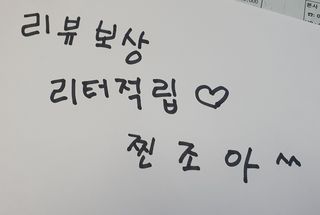 리뷰보상
리터적립♡
찐조아^^